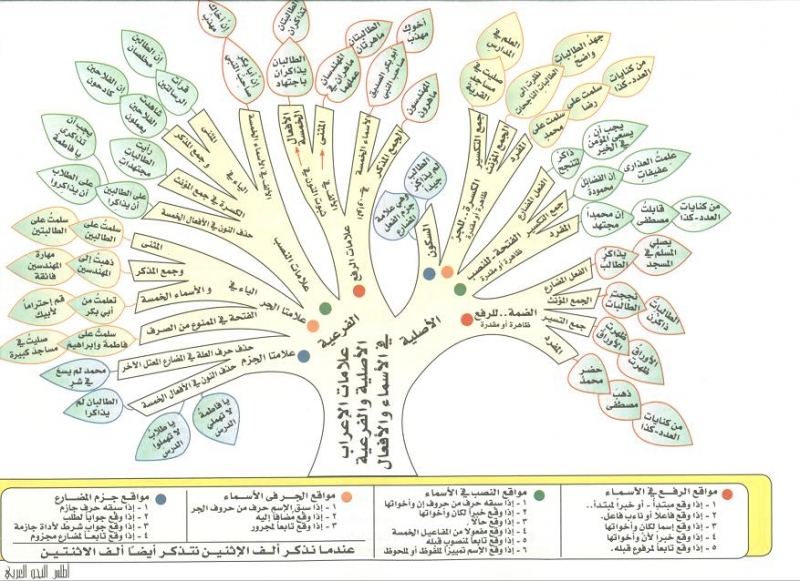 علامات الإعراب
الأصلية والفرعية
في الأسماء والأفعال
الأصلية
الفرعية
الضمة..للرفع
ظاهرة أو مقدرة
المفرد
جمع التكسير
الجمع المؤنث
الفعل المضارع
حضر محمد
ذهب مصطفى
من كنايات العدد-كذا
ظهرت الأوراق
الأوراق ظهرت
نجحت الطالبات
الطالبات ذاكرن
يذاكر الطالب
يصلي المسلم في المسجد
الفتحة..للنصب
ظاهرة أو مقدرة
المفرد
جمع التكسير
الفعل المضارع
إن محمدا مجتهد
قابلت مصطفى
من كنايات العدد-كذا
إن الفضائل محمودة
علمت العذارى عفيفات
ذاكر لتنجح
يجب أن يسعى المؤمن في الخير
الكسرة..للجر
ظاهرة أو مقدرة
المفرد
الجمع المؤنث
جمع التكسير
سلمت على محمد
سلمت على رضا
من كنايات العدد-كذا
نظرت إلى الطالبات الناجحات
جهد الطالبات واضح
صليت في مساجد القرية
العلم في المدارس
السكون
وهي علامة جزم الفعل المضارع
الطالب لم يذاكر جيدا
علامات الرفع
الجمع المذكر
الأسماء الخمسة
المثنى
الأفعال الخمسة
ثبوت النون في
المهندسون ماهرون
أبو بكر الصديق صاحب النبي
أخوك مهذب
المهندسان ماهران في عملهما
الطالبتان ماهرتان
الطالبان يذاكران باجتهاد
الطالبتان تذاكران
علامات النصب
إن أبا بكر صاحب النبي
إن أخاك مهذب
الياء في
المثنى
وجمع المذكر
قدرت الرسالتين
إن الطالبين مخلصان
شاهدت الفلاحين يعملون
إن الفلاحين كادحون
الكسرة في جمع المؤنث
رأيت الطالبات مجتهدات
حذف النون في الأفعال الخمسة
على الطالبين أن يذاكرا
على الطلاب أن يذاكروا
يجب أن تذاكري يا فاطمة
علامتا الجر
الياء في
المثنى
وجمع المذكر
و الأسماء الخمسة
سلمت على الطالبين
سلمت على الطالبتين
ذهبت إلى المهندسين
مهارة المهندسين فائقة
تعلمت من أبي بكر
قم احتراماً لأبيك
الفتحة في الممنوع من الصرف
سلمت على فاطمة وإبراهيم
صليت في مساجد كبيرة
علامتا الجزم
حذف حرف العلة في المضارع المعتل الآخر
محمد لم يسع في شر
حذف النون في الأفعال الخمسة
الطالبان لم يذاكرا
يا طلاب لا تهملوا الدرس
يا فاطمة لا تهملي الدرس
مواقع الرفع في الأسماء
١ - إذا وقع مبتدأ - أو خبراً لمبتدأ..
٢ - إذا وقع فاعلاً أو نائب فاعل.
٣ - إذا وقع إسما لكان وأخواتها
٤ - إذا وقع خبراً لأن وأخواتها
٥ - إذا وقع تابعاً لمرفوع قبله.
مواقع النصب في الأسماء
١ - إذا سبقه حرف من حروف إن وأخواتها
٢ - إذا وقع خبراً لكان وأخواتها
٣ - إذا وقع حالاً.
٤ - إذا وقع مفعولا من المفاعيل الخمسة
٥ - إذا وقع تابعاً لمنصوب قبله
٦ - إذا وقع الإسم تمييزاً لملفوظ أو لملحوظ
مواقع الجر في الأسماء
١ - إذا سبق الإسم حرف من حروف الجر
٢ - إذا وقع مضافاً إليه
٣ - إذا وقع تابعاً لمجرور
مواقع جزم المضارع
١ - إذا سبقه حرف جازم
٢ - إذا وقع جواباً لطلب
٣ - إذا وقع جواب شرط لأداة جازمة
٤ - إذا وقع تابعاً لمضارع مجزوم
عندما نذكر ألف الإثنين نتذكر أيضاً ألف الاثنتين
أطلس النحو العربي